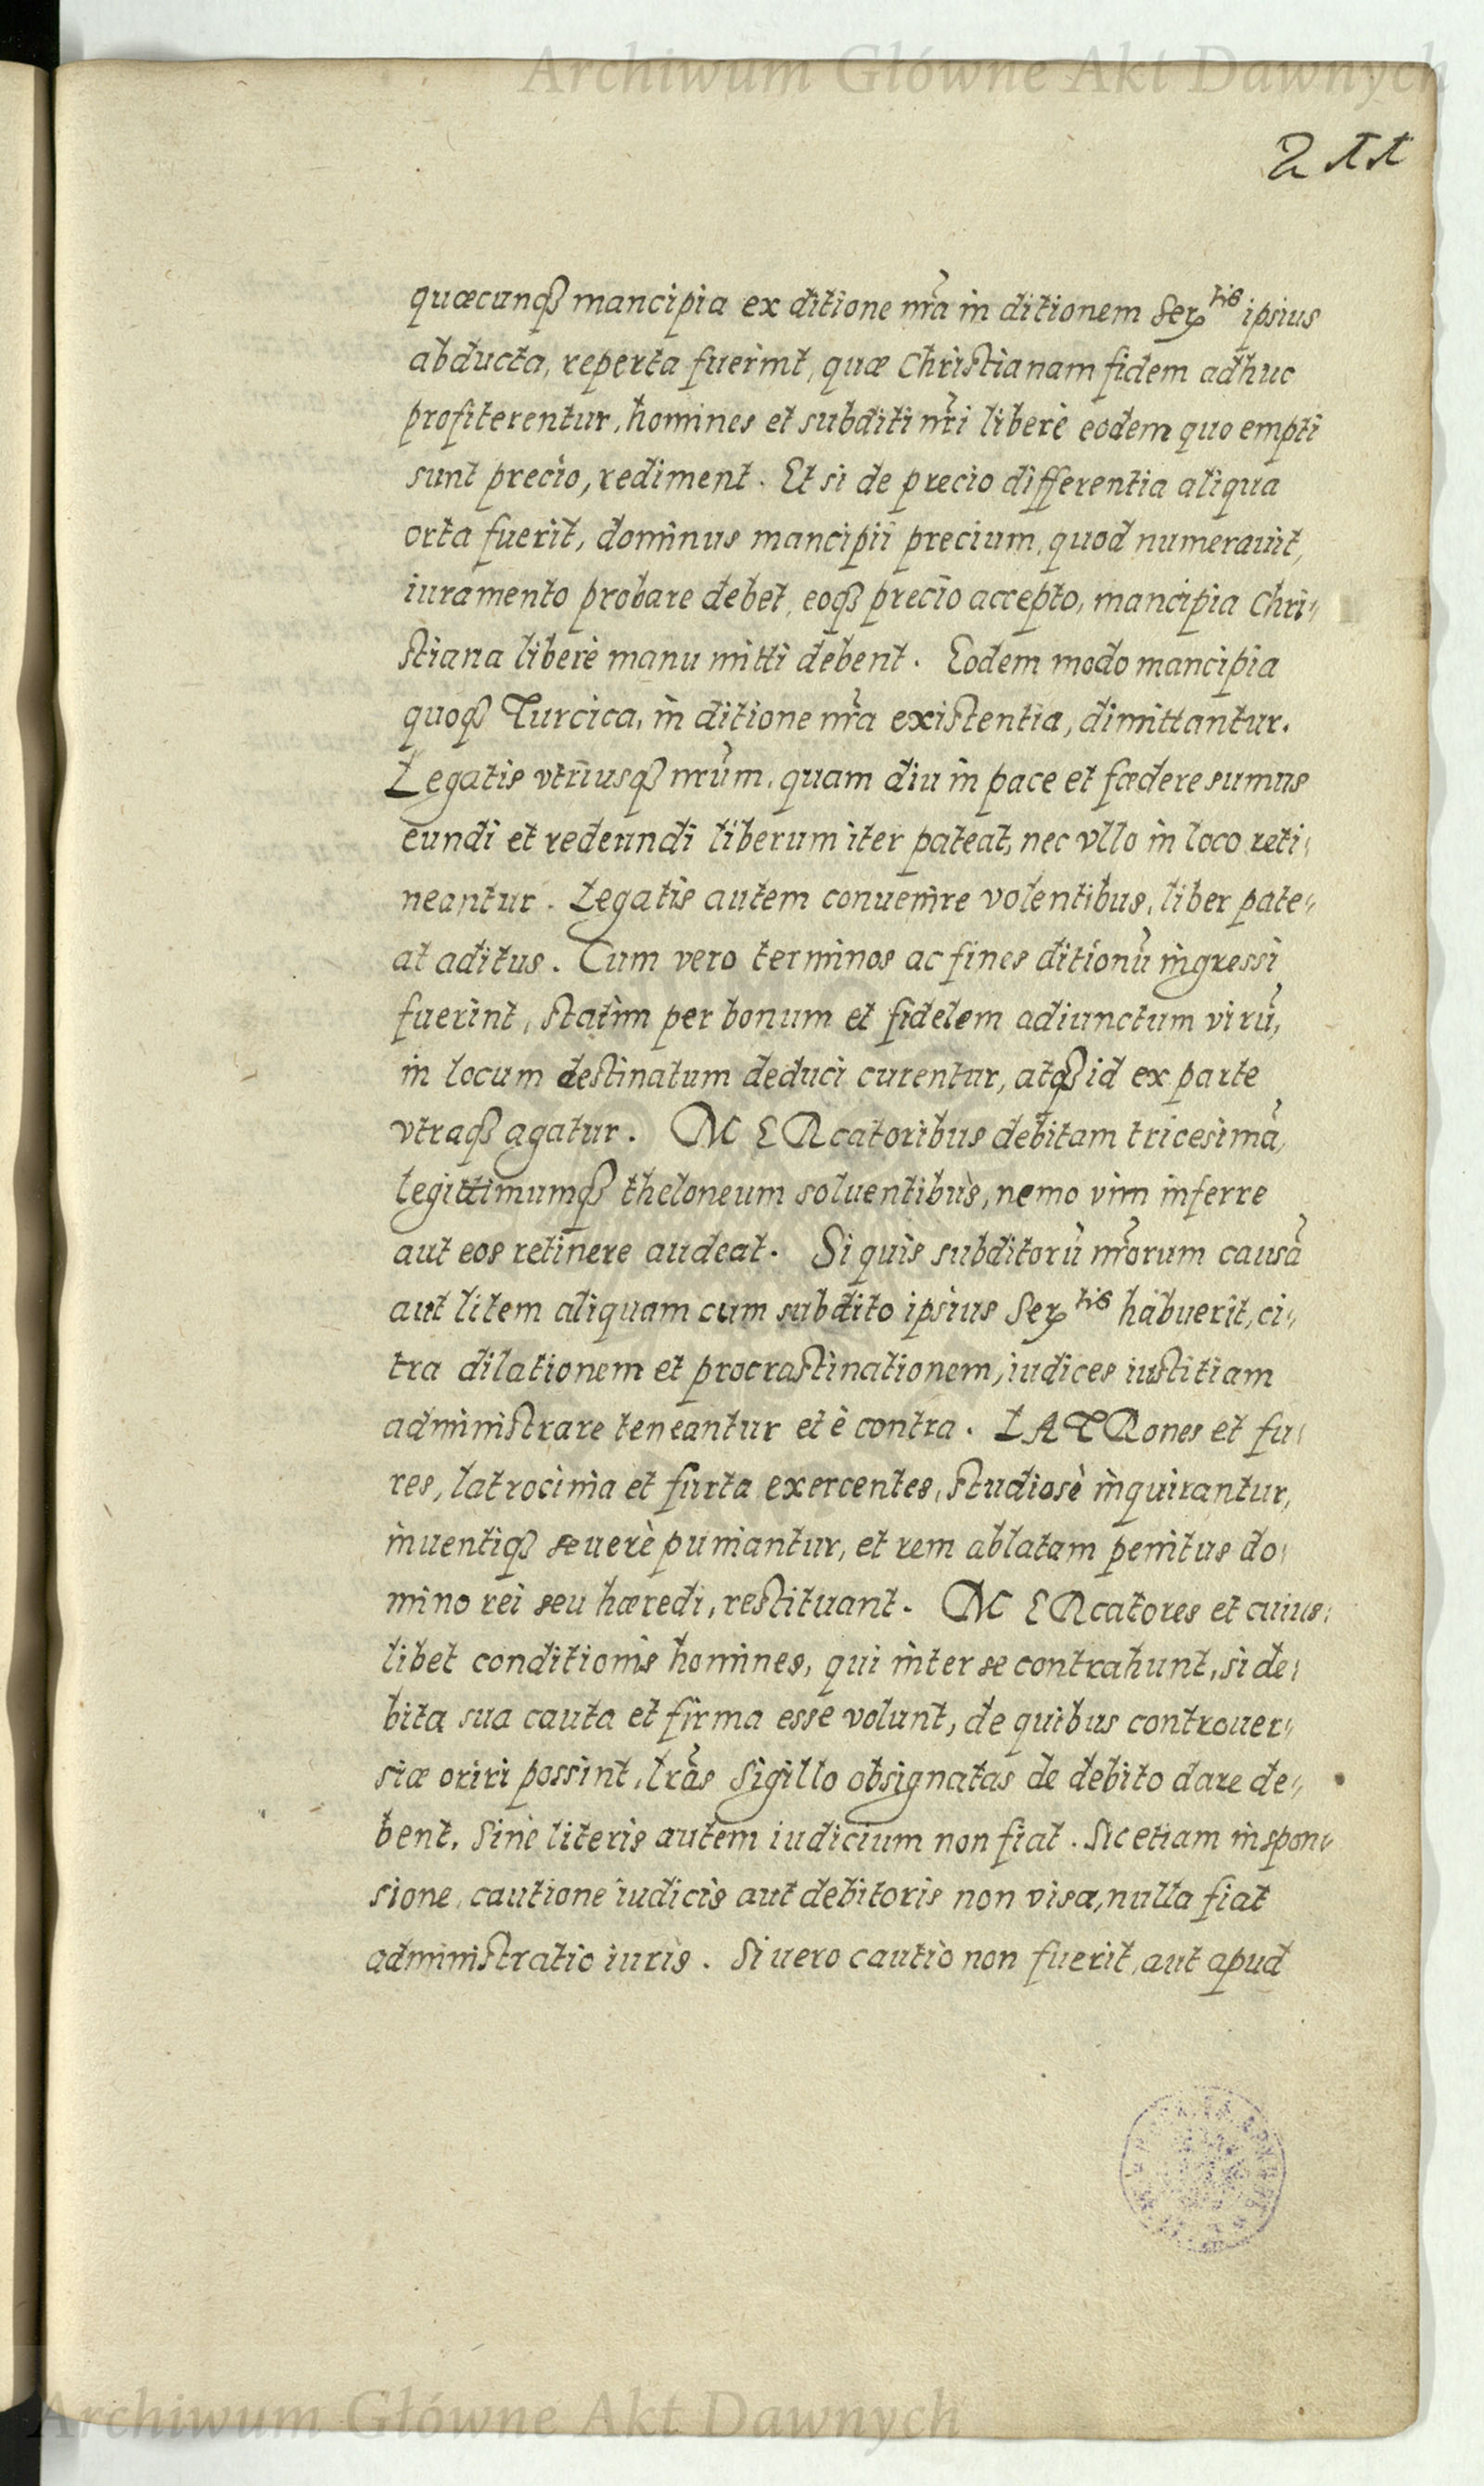 Archiwum Główne Akt Dawnych
211
quæcunqꝫ mancipia ex ditione nr̃a in ditionem Serᵗⁱˢ ipsius
abducta, reperta fuerint, quæ Christianam fidem adhuc
profiterentur, homines et subditi nr̃i liberè eodem quo empti
sunt precio, rediment. Et si de precio differentia aliqua
orta fuerit, dominus mancipii precium, quod numerauit,
iuramento probare debet, eoqꝫ precio accepto, mancipia Chri-
stiana liberè manu mitti debent. Eodem modo mancipia
quoqꝫ Turcica, in ditione nr̃a existentia, dimittantur.
Legatis vtriusqꝫ nr̃um, quam diu in pace et fœdere sumus
eundi et redeundi liberum iter pateat, nec vllo in loco reti-
neantur. Legatis autem conuenire volentibus, liber pate-
at aditus. Cum vero terminos ac fines ditionũ ingressi
fuerint, statim per bonum et fidelem adiunctum virũ,
in locum destinatum deduci curentur, atqꝫ id ex parte
vtraqꝫ agatur. MERcatoribus debitam tricesimã,
legittimumqꝫ theloneum soluentibus, nemo vim inferre
aut eos retinere audeat. Si quis subditorũ nr̃orum causã
aut litem aliquam cum subdito ipsius Serᵗⁱˢ habuerit, ci-
tra dilationem et procrastinationem, iudices iustitiam
administrare teneantur et è contra. LATRones et fu-
res, latrocinia et furta exercentes, studiosè inquirantur,
inuentiqꝫ seuerè puniantur, et rem ablatam penitus do-
mino rei seu hæredi, restituant. MERcatores et cuius-
libet conditionis homines, qui inter se contrahunt, si de-
bita sua cauta et firma esse volunt, de quibus controuer-
siæ oriri possint, lr̃as sigillo obsignatas de debito dare de-
bent, Sine literis autem iudicium non fiat. Sic etiam in spon-
sione, cautione iudicis aut debitoris non visa, nulla fiat
administratio iuris. Si uero cautio non fuerit, aut apud
Archiwum Główne Akt Dawnych